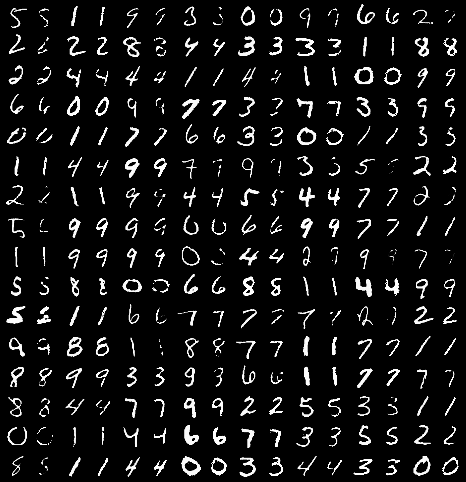 5 5 1 1 9 9 3 3 0 0 9 9 6 6 2
2 2 2 2 8 8 4 4 3 3 3 3 1 1 8 8
2 2 4 4 4 4 1 1 4 4 1 1 0 0 9 9
6 6 0 0 9 9 7 7 3 3 7 7 3 3 9 9
0 0 1 1 7 7 6 6 3 3 0 0 1 1 3 3
1 1 4 4 9 9 7 7 9 9 3 3 5 5 2 2
2 2 1 1 9 9 4 4 5 5 4 4 7 7 2 2
5 9 9 9 9 0 0 6 6 9 9 7 7 1 1
1 1 9 9 9 9 0 4 4 2 9 7 7
5 5 8 8 0 0 6 6 8 8 1 1 4 4 9 9
5 5 1 1 6 6 7 7 7 7 7 7 2 2 2
9 9 8 8 1 1 8 8 7 7 1 1 7 7 1 1
8 8 9 9 3 3 9 3 6 6 1 1 7 7 7 7
8 8 4 4 7 7 9 9 2 2 5 5 3 3 1 1
0 0 1 1 4 4 6 6 7 7 3 3 5 5 2 2
8 8 1 1 4 4 0 0 3 3 4 4 3 3 0 0